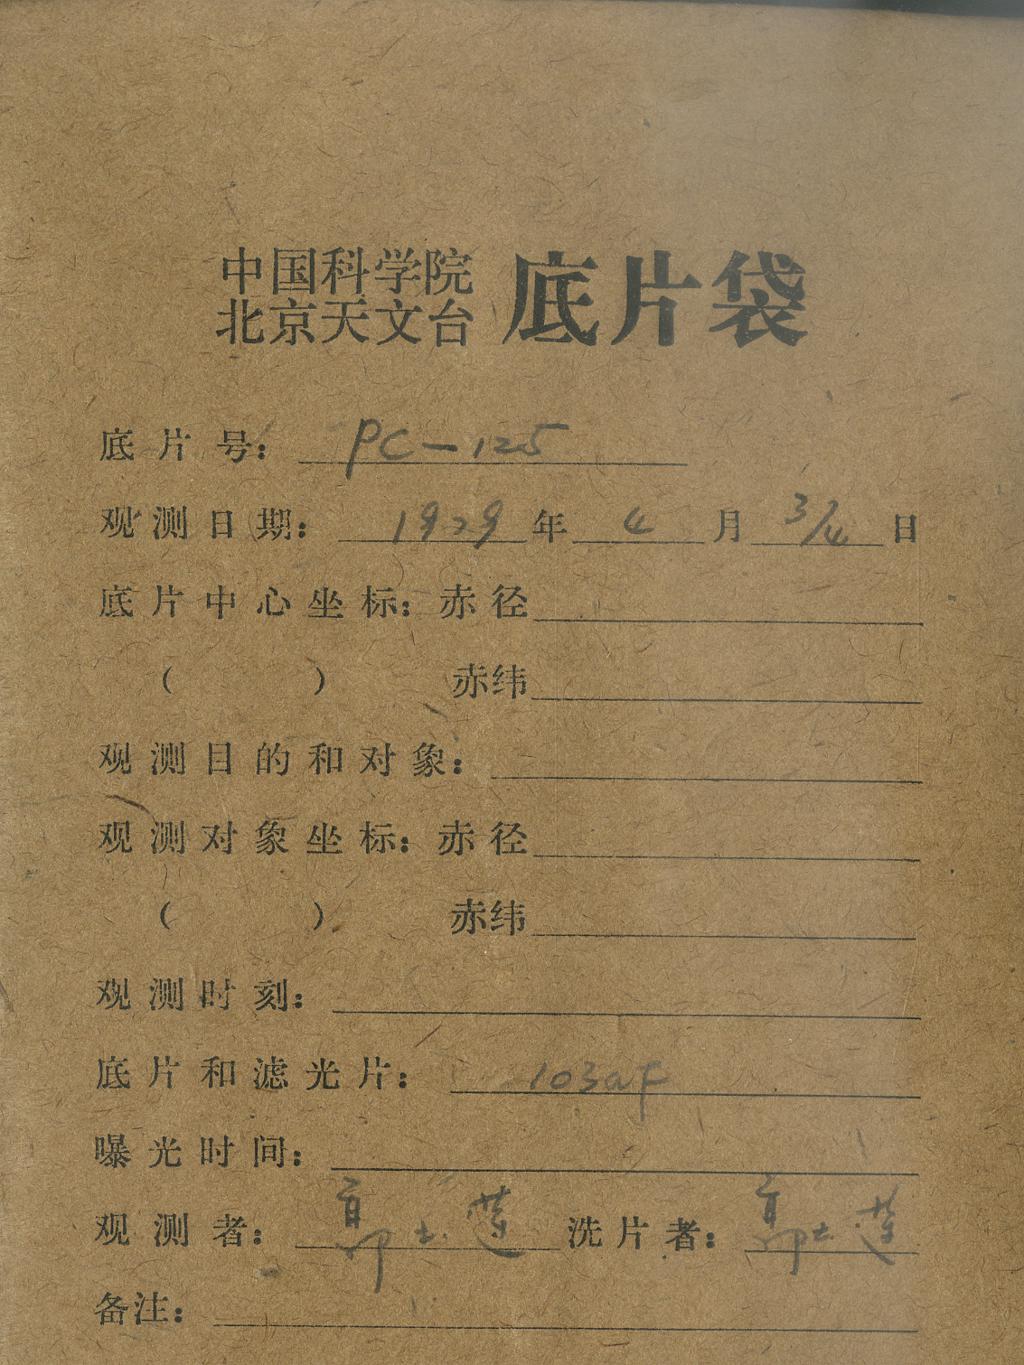 中国科学院
北京天文台 底片袋
底片号: PC-125
观测日期: 1979年 4 月 3/4 日
底片中心坐标: 赤径
( ) 赤纬
观测目的和对象:
观测对象坐标: 赤径
( ) 赤纬
观测时刻:
底片和滤光片: 103aF
曝光时间:
观测者: 洗片者:
备注: